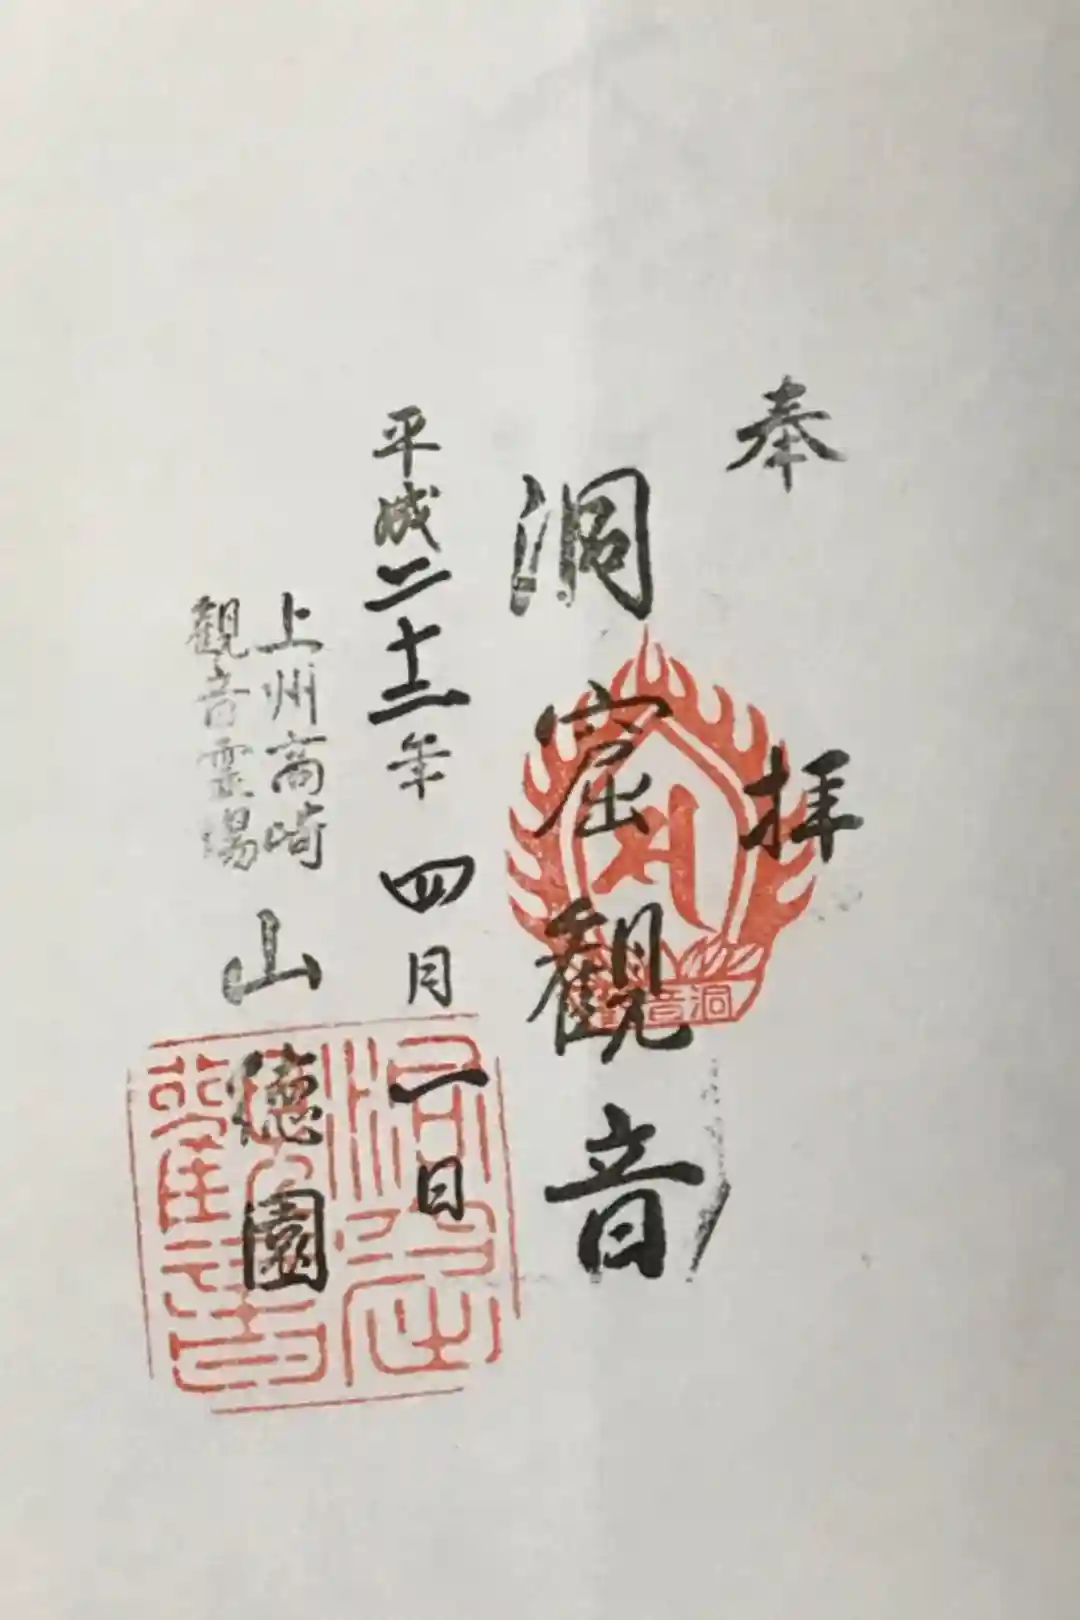 奉拝
洞窟觀音
平成二十二年四月一日
上州高崎
觀音霊場
山徳園
洞窟
觀音